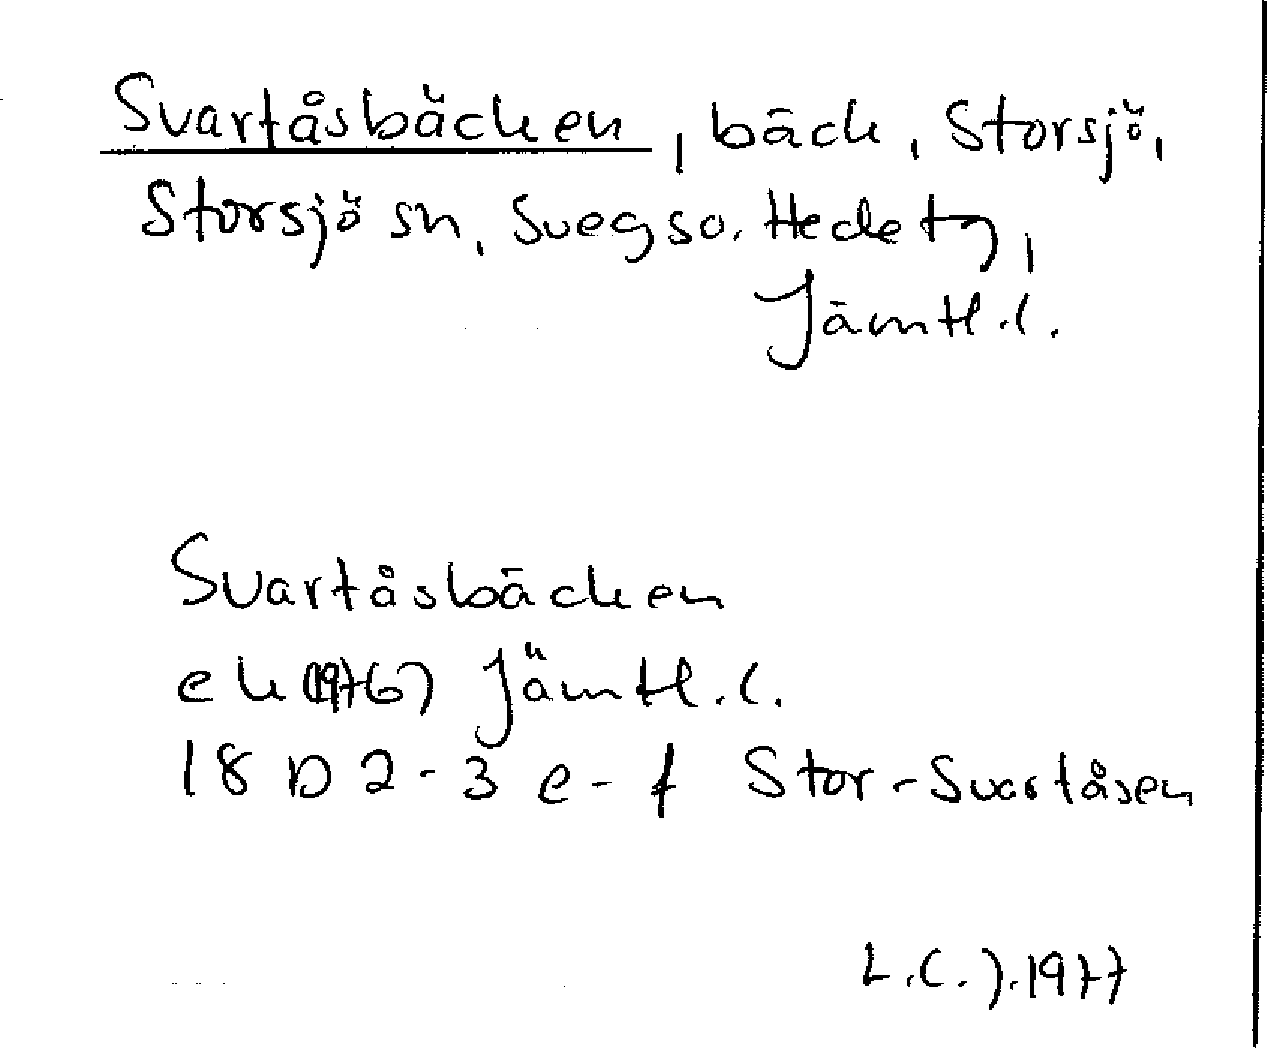 Svartåsbäcken, bäck, Storsjö,
Storsjö sn, Svegs o. Hede tg,
Jämtl. l.
Svartåsbäcken
ek (1976) Jämtl. l.
18 D 2-3 e-f Stor-Svartåsen
L.C.J. 1977